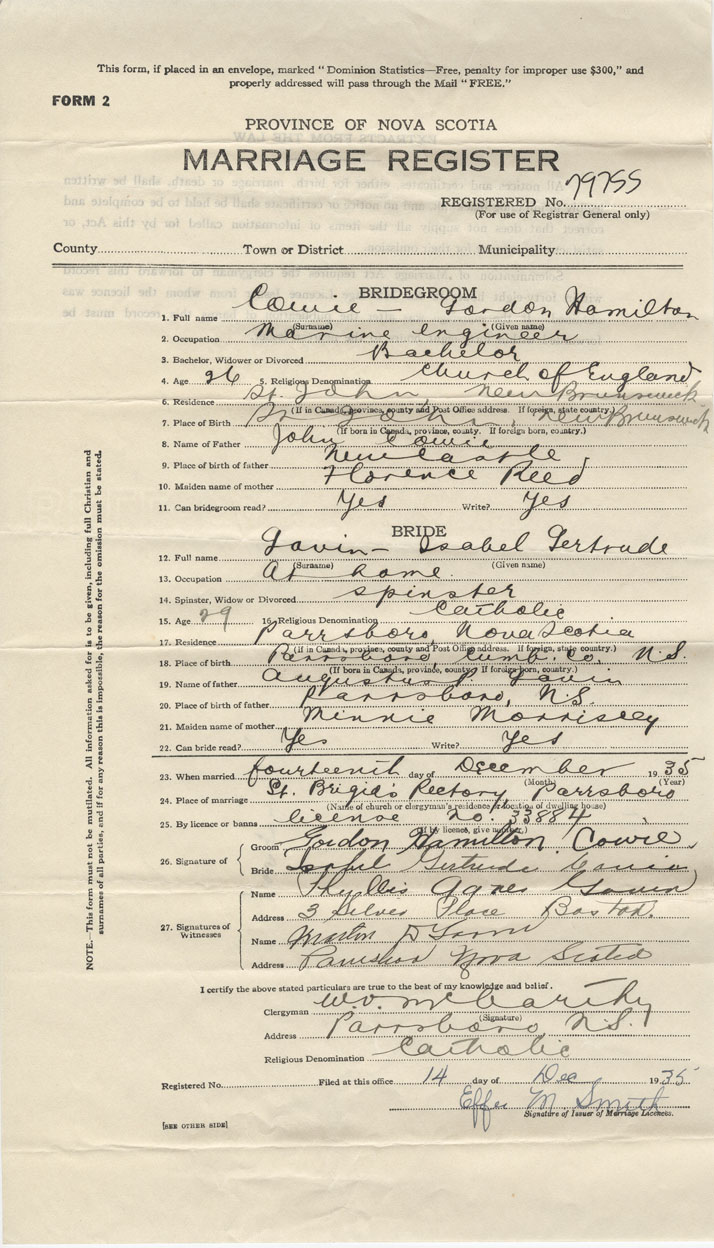 This form, if placed in an envelope, marked "Dominion Statistics—Free, penalty for improper use $300," and
properly addressed will pass through the Mail "FREE."
FORM 2
PROVINCE OF NOVA SCOTIA
MARRIAGE REGISTER
REGISTERED No. 79755
(For use of Registrar General only)
County Town or District Municipality
BRIDEGROOM
1. Full name Cowie - Gordon Hamilton
(Surname) (Given name)
2. Occupation Marine engineer
3. Bachelor, Widower or Divorced Bachelor
4. Age 26 5. Religious Denomination Church of England
6. Residence St. John, New Brunswick
(If in Canada, province, county and Post Office address. If foreign, state country.)
7. Place of Birth St. John, New Brunswick
(If born in Canada, province, county. If foreign born, country.)
8. Name of Father John Cowie
9. Place of birth of father Newcastle
10. Maiden name of mother Florence Reed
11. Can bridegroom read? Yes Write? Yes
BRIDE
12. Full name Gavin - Isabel Gertrude
(Surname) (Given name)
13. Occupation At home
14. Spinster, Widow or Divorced spinster
15. Age 29 16. Religious Denomination Catholic
17. Residence Parrsboro, Nova Scotia
(If in Canada, province, county and Post Office address. If foreign, state country.)
18. Place of birth Parrsboro, Cumb. Co. N.S.
(If born in Canada, province, county? If foreign born, country.)
19. Name of father Augustus P. Gavin
20. Place of birth of father Parrsboro, N.S.
21. Maiden name of mother Minnie Morrissey
22. Can bride read? Yes Write? Yes
23. When married fourteenth day of December 1935
(Month) (Year)
24. Place of marriage St. Brigid's Rectory Parrsboro
(Name of church or clergyman's residence or location of dwelling house)
25. By licence or banns license no. 33884
(If by licence, give number.)
26. Signature of
Groom Gordon Hamilton Cowie
Bride Isabel Gertrude Gavin
27. Signatures of Witnesses
Name Phyllis Agnes Gavin
Address 3 Place Boston.
Name Martin D
Address Nova Scotia
I certify the above stated particulars are true to the best of my knowledge and belief.
Clergyman W. V. McCarthy
(Signature)
Address Parrsboro, N.S.
Religious Denomination Catholic
Registered No. Filed at this office 14 day of Dec 1935
Effie M. Smith
Signature of Issuer of Marriage Licences.
[SEE OTHER SIDE]
NOTE.—This form must not be mutilated. All information asked for is to be given, including full Christian and
surnames of all parties, and if for any reason this is impossible, the reason for the omission must be stated.